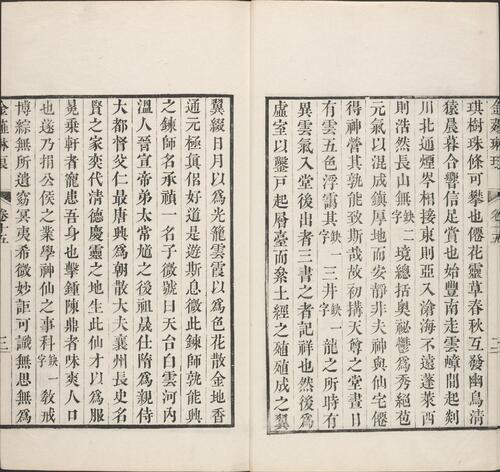 金薤琳琅 卷十五 二
琪樹珠條可攀也僊花靈草春秋互發幽鳥清
猿晨暮合響信足賞也始豐南走雲嶂間起剡
川北通煙岑相接東則亞入滄海不遠蓬萊西
則浩然長山無缺二字境總括奥祕鬱為秀絕苞
元氣以混成鎮厚地而安靜非夫神與仙宅僊
得神營其孰能致斯哉故初搆天尊之堂晝日
有雲五色浮靄其缺一字三井缺一字龍之所時有
異雲氣入堂後出者三書之者記祥也然後為
虛室以鑿戶起層臺而絫土經之殖殖成之翼
翼綴日月以為光籠雲霞以為色花散金地香
通元極真侶好道是遊斯息微此鍊師孰能興
之鍊師名承禎一名子微號曰天台白雲河內
溫人晉宣帝弟太常馗之後祖晟仕隋為親侍
大都督父仁最唐興為朝散大夫襄州長史名
賢之家奕代清德慶靈之地生此仙才以為服
冕乘軒者寵患吾身也擊鍾陳鼎者味爽人口
也遂乃捐公侯之業學神仙之事科缺一字教戒
博綜無所遺窈冥夷希微妙詎可識無思無為
金薤琳琅 卷十五 三